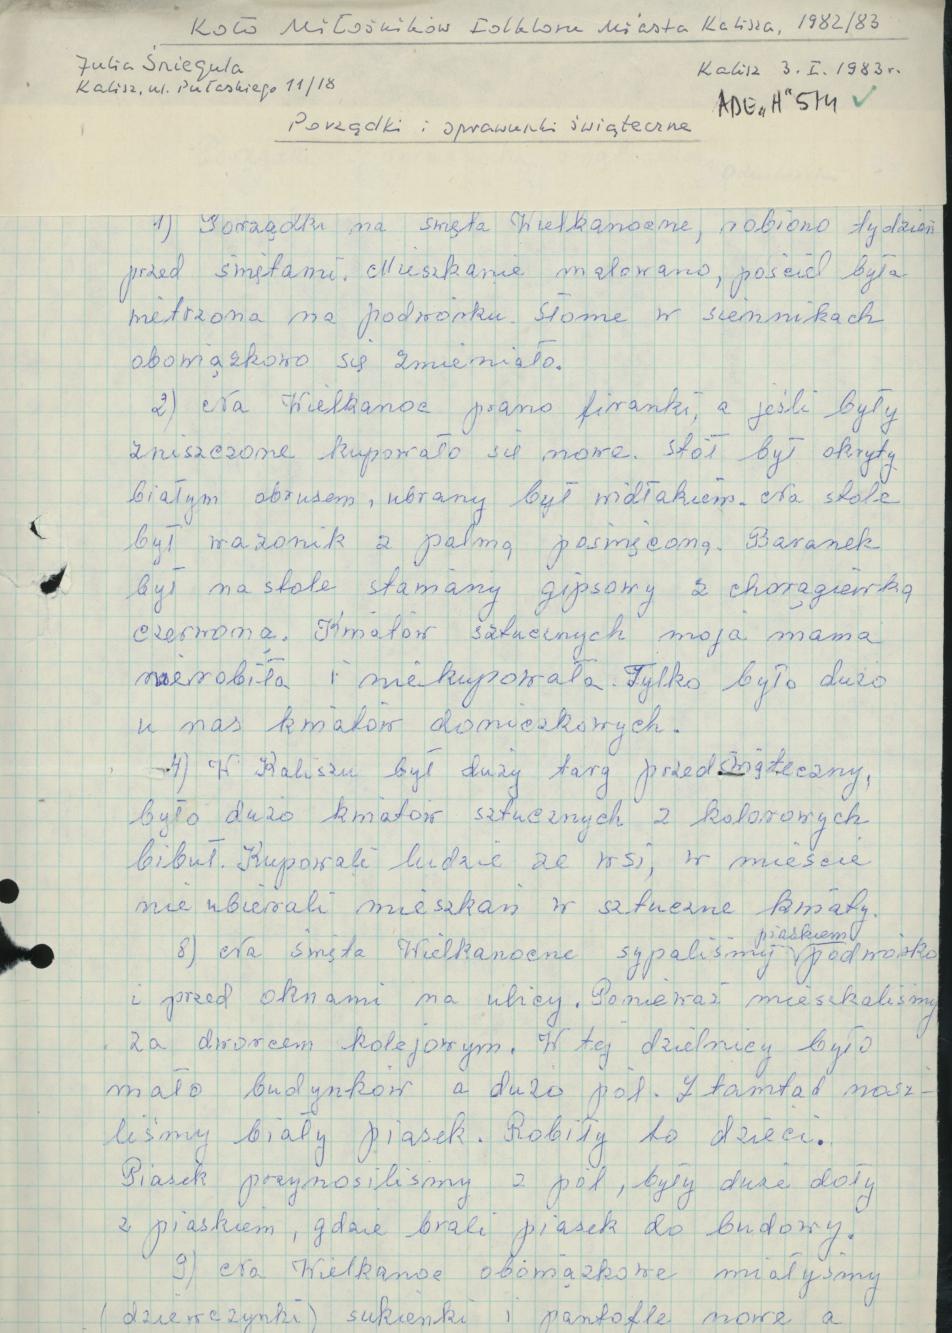 Koło Miłośników Folkloru Miasta Kalisza, 1982/83
Julia Śniegula
Kalisz, ul. Pułaskiego 11/18
Kalisz 3.I.1983r.
ADE„H" 514 ✓
Porządki i sprawunki świąteczne
1) Porządki na święta Wielkanocne, robiono tydzień
przed świętami. Mieszkanie malowano, pościel była
wietrzona na podwórku. Słome w siennikach
obowiązkowo się zmieniało.
2) Na Wielkanoc prano firanki, a jeśli były
zniszczone kupowało się nowe. Stół był okryty
białym obrusem, ubrany był widłakiem. Na stole
był wazonik z palmą poświęconą. Baranek
był na stole stawiany gipsowy z chorągiewką
czerwoną. Kwiatów sztucznych moja mama
nierobiła i niekupowała. Tylko było dużo
u nas kwiatów doniczkowych.
4) W Kaliszu był duży targ przedświąteczny,
było dużo kwiatów sztucznych z kolorowych
bibuł. Kupowali ludzie ze wsi, w mieście
nie ubierali mieszkań w sztuczne kwiaty.
8) Na święta Wielkanocne sypaliśmy piaskiem podwórko
i przed oknami na ulicy. Ponieważ mieszkaliśmy
za dworcem kolejowym. W tej dzielnicy było
mało budynków a dużo pól. Z tamtąd nosi-
liśmy biały piasek. Robiły to dzieci.
Piasek przynosiliśmy z pól, były duże doły
z piaskiem, gdzie brali piasek do budowy.
9) Na Wielkanoc obowiązkowe miałyśmy
(dziewczynki) sukienki i pantofle nowe a